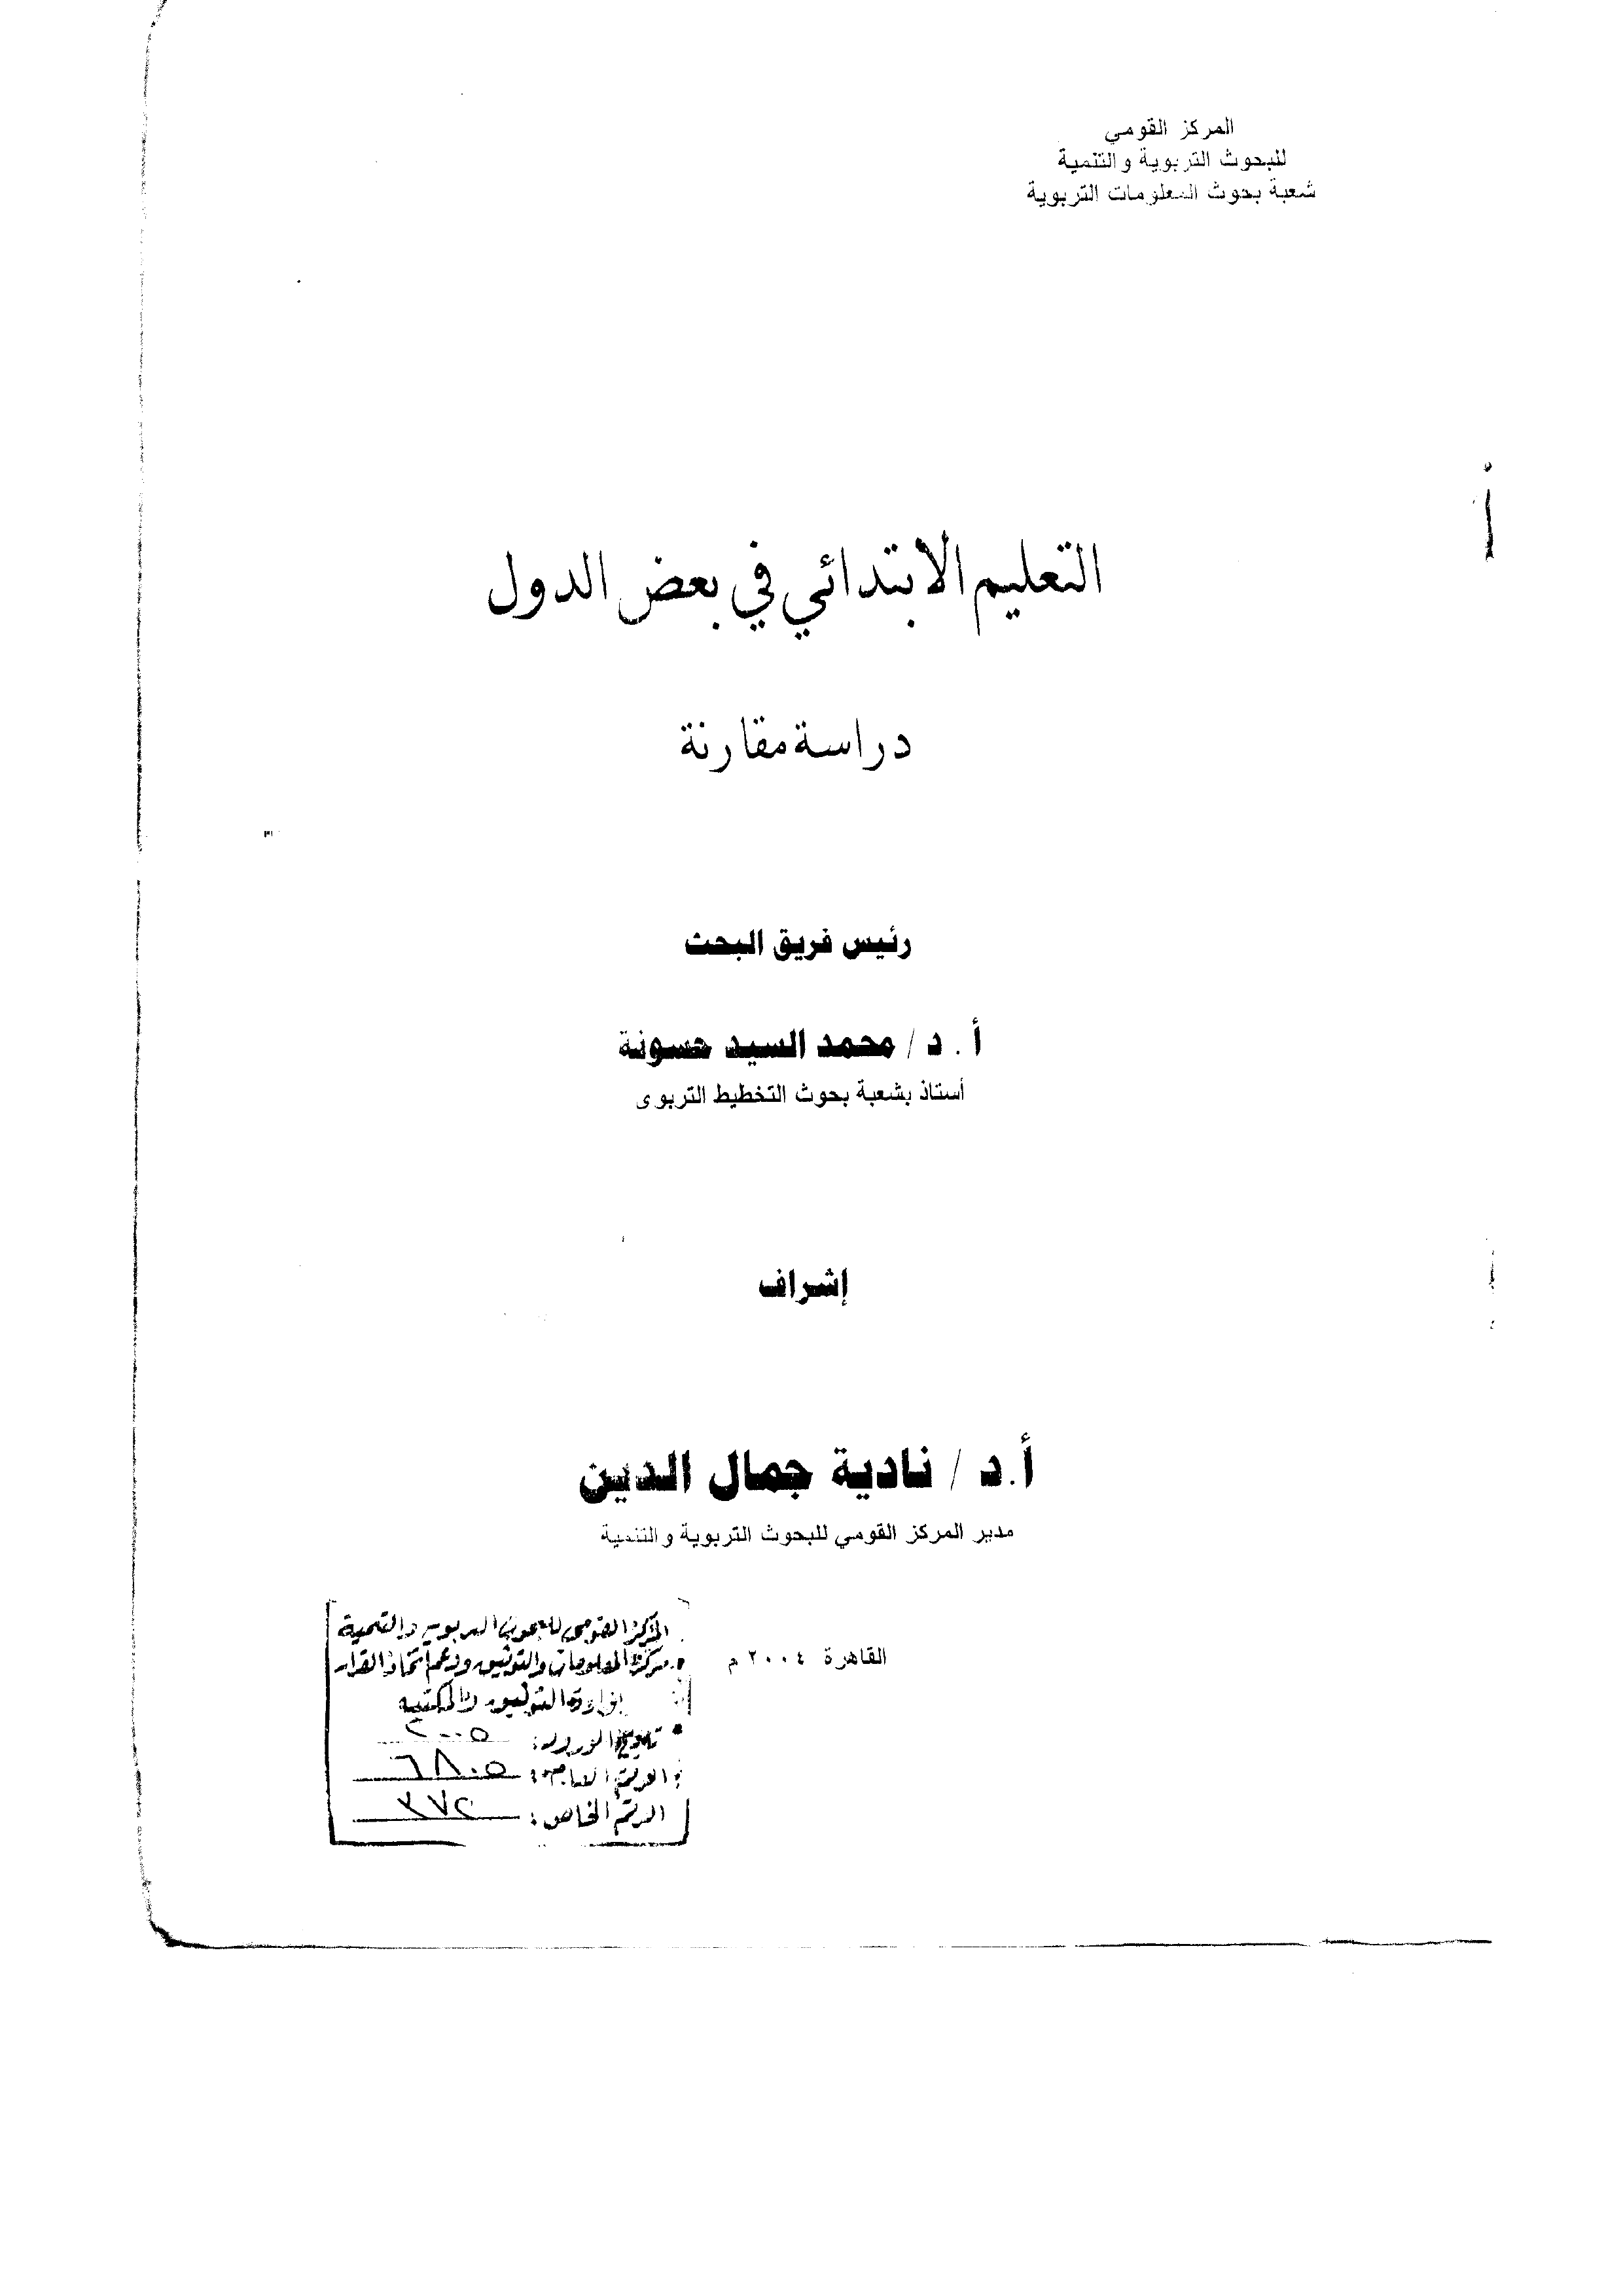 المركز القومي
للبحوث التربوية والتنمية
شعبة بحوث المعلومات التربوية
التعليم الابتدائي في بعض الدول
دراسة مقارنة
رئيس فريق البحث
أ . د / محمد السيد حسونة
أستاذ بشعبة بحوث التخطيط التربوى
إشراف
أ.د / نادية جمال الدين
مدير المركز القومي للبحوث التربوية والتنمية
القاهرة ٢٠٠٤ م
المركز القومى للبحوث التربوية والتنمية
مركز المعلومات والتوثيق ودعم اتخاذ القرار
إدارة التوثيق والمكتبة
تاريخ الورود: ٢٠٠٥
الرقم العام: ٦٨٠٥
الرقم الخاص: ٣٧٢